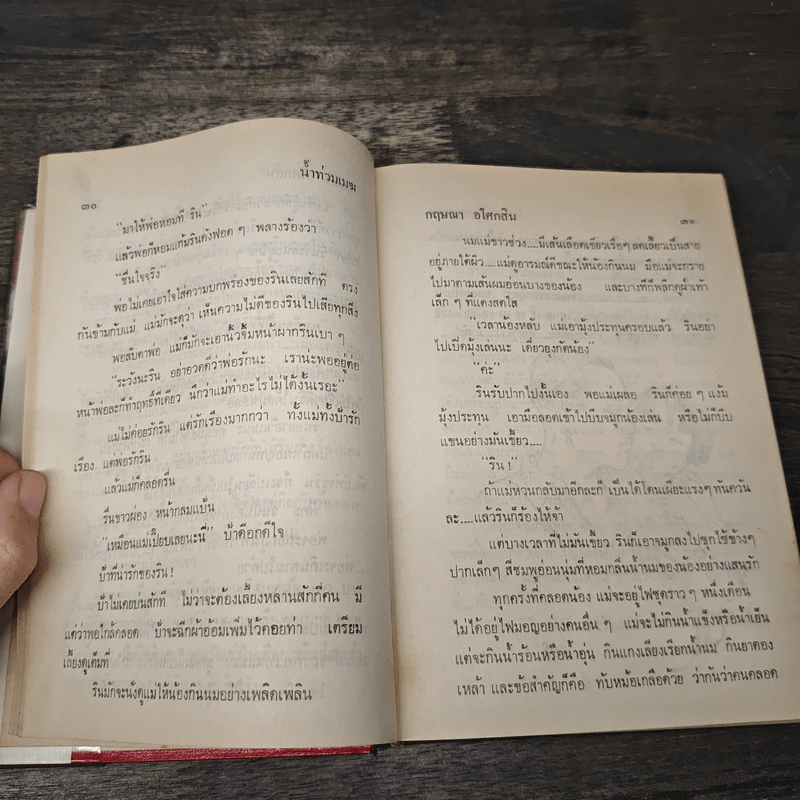 ๓๐
น้ำท่วมเมฆ
"มาให้พ่อหอมที ริน"
แล้วพ่อก็หอมแก้มรินดังฟอด ๆ พลางร้องว่า
"ชื่นใจจริง"
พ่อไม่เคยเอาใจใส่ความบกพร่องของรินเลยสักที ตรง
กันข้ามกับแม่ แม่มักจะดุว่า เห็นความไม่ดีของรินไปเสียทุกสิ่ง
พอลับตาพ่อ แม่ก็มักจะเอานิ้วจิ้มหน้าผากรินเบา ๆ
"ระวังนะริน อย่าอวดดีว่าพ่อรักนะ เราน่ะพออยู่ต่อ
หน้าพ่อละก็ทำฤทธิ์ทีเดียว นึกว่าแม่ทำอะไรไม่ได้งั้นเรอะ"
แม่ไม่ค่อยรักริน แต่รักเรืองมากกว่า ทั้งแม่ทั้งป้ารัก
เรือง แต่พ่อรักริน
แล้วแม่ก็คลอดรื่น
รื่นขาวผ่อง หน้ากลมแป้น
"เหมือนแม่เปี๊ยบเลยนะนี่" ป้าดีอกดีใจ
ป้าที่น่ารักของริน !
ป้าไม่เคยบ่นสักที ไม่ว่าจะต้องเลี้ยงหลานสักกี่คน มี
แต่ว่าพอใกล้คลอด ป้าจะฉีกผ้าอ้อมเพิ่มไว้คอยท่า เตรียม
เลี้ยงดูเต็มที่
รินมักจะนั่งดูแม่ให้น้องกินนมอย่างเพลิดเพลิน
กฤษณา อโศกสิน
๓๑
นมแม่ขาวช่วง....มีเส้นเลือดเขียวเรื่อๆ ลดเลี้ยวเป็นสาย
อยู่ภายใต้ผิว....แม่ดูอารมณ์ดีขณะให้น้องกินนม มือแม่จะกราย
ไปมาตามเส้นผมอ่อนบางของน้อง และบางทีก็พลิกดูฝ่าเท้า
เล็ก ๆ ที่แดงสดใส
"เวลาน้องหลับ แม่เอามุ้งประทุนครอบแล้ว รินอย่า
ไปเปิดมุ้งเล่นนะ เดี๋ยวยุงกัดน้อง"
"ค่ะ"
รินรับปากไปงั้นเอง พอแม่เผลอ รินก็ค่อย ๆ แง้ม
มุ้งประทุน เอามือลอดเข้าไปบีบจมูกน้องเล่น หรือไม่ก็บีบ
แขนอย่างมันเขี้ยว....
"ริน !"
ถ้าแม่หวนกลับมาอีกละก็ เป็นได้โดนเผียะแรงๆ ทันควัน
ละ....แล้วรินก็ร้องไห้จ้า
แต่บางเวลาที่ไม่มันเขี้ยว รินก็เอาจมูกลงไปซุกไซ้ข้างๆ
ปากเล็กๆ สีชมพูอ่อนนุ่มที่หอมกลิ่นน้ำนมของน้องอย่างแสนรัก
ทุกครั้งที่คลอดน้อง แม่จะอยู่ไฟชุดราว ๆ หนึ่งเดือน
ไม่ได้อยู่ไฟมอญอย่างคนอื่น ๆ แม่จะไม่กินน้ำแข็งหรือน้ำเย็น
แต่จะกินน้ำร้อนหรือน้ำอุ่น กินแกงเลียงเรียกน้ำนม กินยาดอง
เหล้า และข้อสำคัญก็คือ ทับหม้อเกลือด้วย ว่ากันว่าคนคลอด